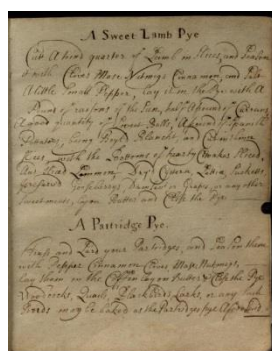 A Sweet Lamb Pye
Cut A hind quarter of Lamb in and Season
it with Cloves Mace Nutmegs Cinnamon, and Salt
A little Small Pepper, lay it in the Pye with A
Pound of raisons of the Sun, half A pound of Currans
A good quantity of Balls, A pound of Spanish
Potatoes, being Boyl'd Blancht, and
with the Bottoms of hearty Sliced,
Lemmon, Dry'd Cittern,
preserved Goosberrys, or Grapes, or any other
Sweetmeats, lay on Butter and Close the Pye
A Partridge Pye.
Truss and Lard your Partridges, and Season them
with Pepper Cinnamon Cloves Mace, Nutmegs,
lay them in the Coffin lay on Butter & Close the Pye
Woodcocks, Quails, Blackbirds Larks, or any such
Birds may be baked as the Partridges pye